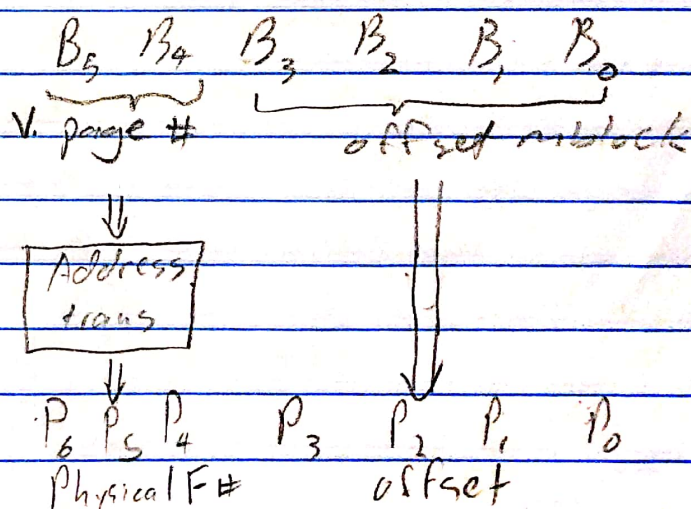 B₅ B₄ B₃ B₂ B₁ B₀
V. page # offset
Address
trans
P₆ P₅ P₄ P₃ P₂ P₁ P₀
Physical F# offset